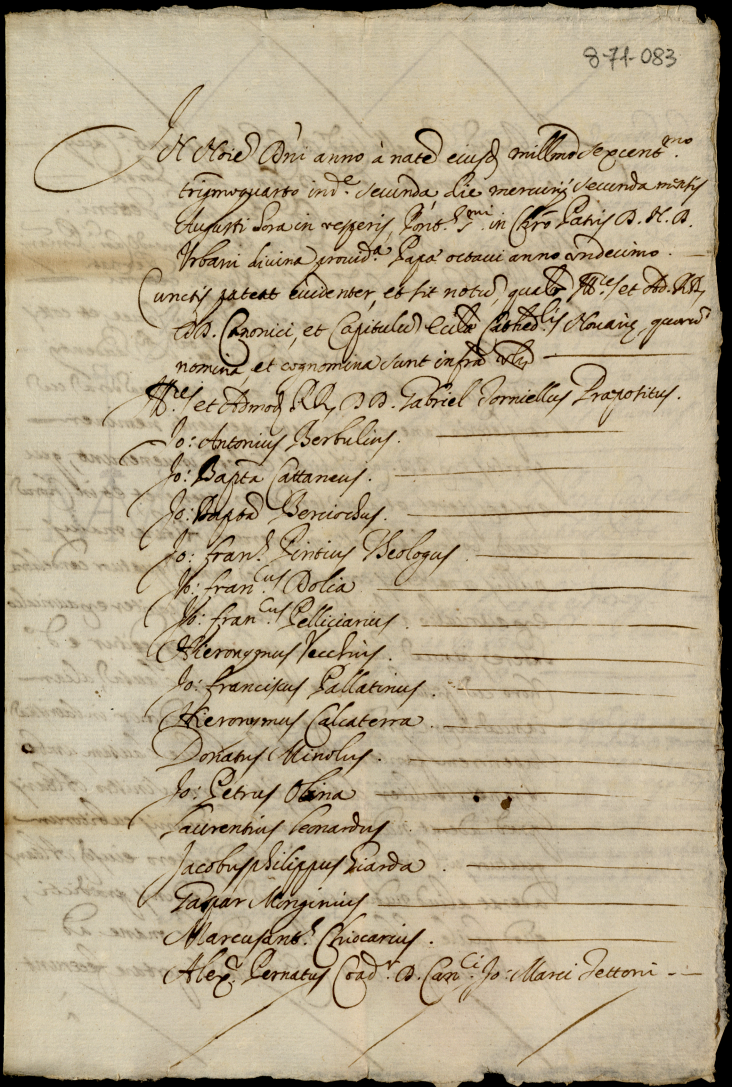 8-71-083
In Noie Dni anno à natte eiusd millmo sexcent.mo
trigmoquarto ind.e secunda die mercurij secunda mensis
Augusti hora in vesperis, Pont. S.mi in Chro Patris D. N. D.
Urbani divina provid.a Papa octavi anno undecimo.
Cunctis pateat evidenter, et sit notu, qualr Ill.res et Ad. RR.
DD. Canonici, et Capitulu Eccliæ Cathed.lis Novariæ, quoru
nomina, et cognomina sunt infra
Ill.res et Admod. RR. DD. Gabriel Torniellus Præpositus.
Jo: Antonius Berbulius.
Jo: Bapta Cattaneus.
Jo: Bapta Berciochus.
Jo: fran. Pintius Theologus.
Jo: fran.cus Dolia
Jo: fran.cus Pelliciarius.
Hieronymus Vecchius.
Jo: franciscus Pallatinus.
Hieronymus Calcaterra.
Donatus Minolus.
Jo: Petrus Olina
Laurentius Leonardus
Jacobusphilippus Giarda
Gaspar Minginius
Marcusant. Chiocarius.
Alex.r Pernatus Coad.r D. Can.ci Jo: Marci Tettoni